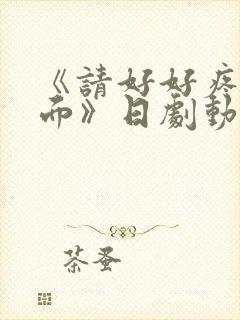 《請好好疼
而》日劇動
茶蚤